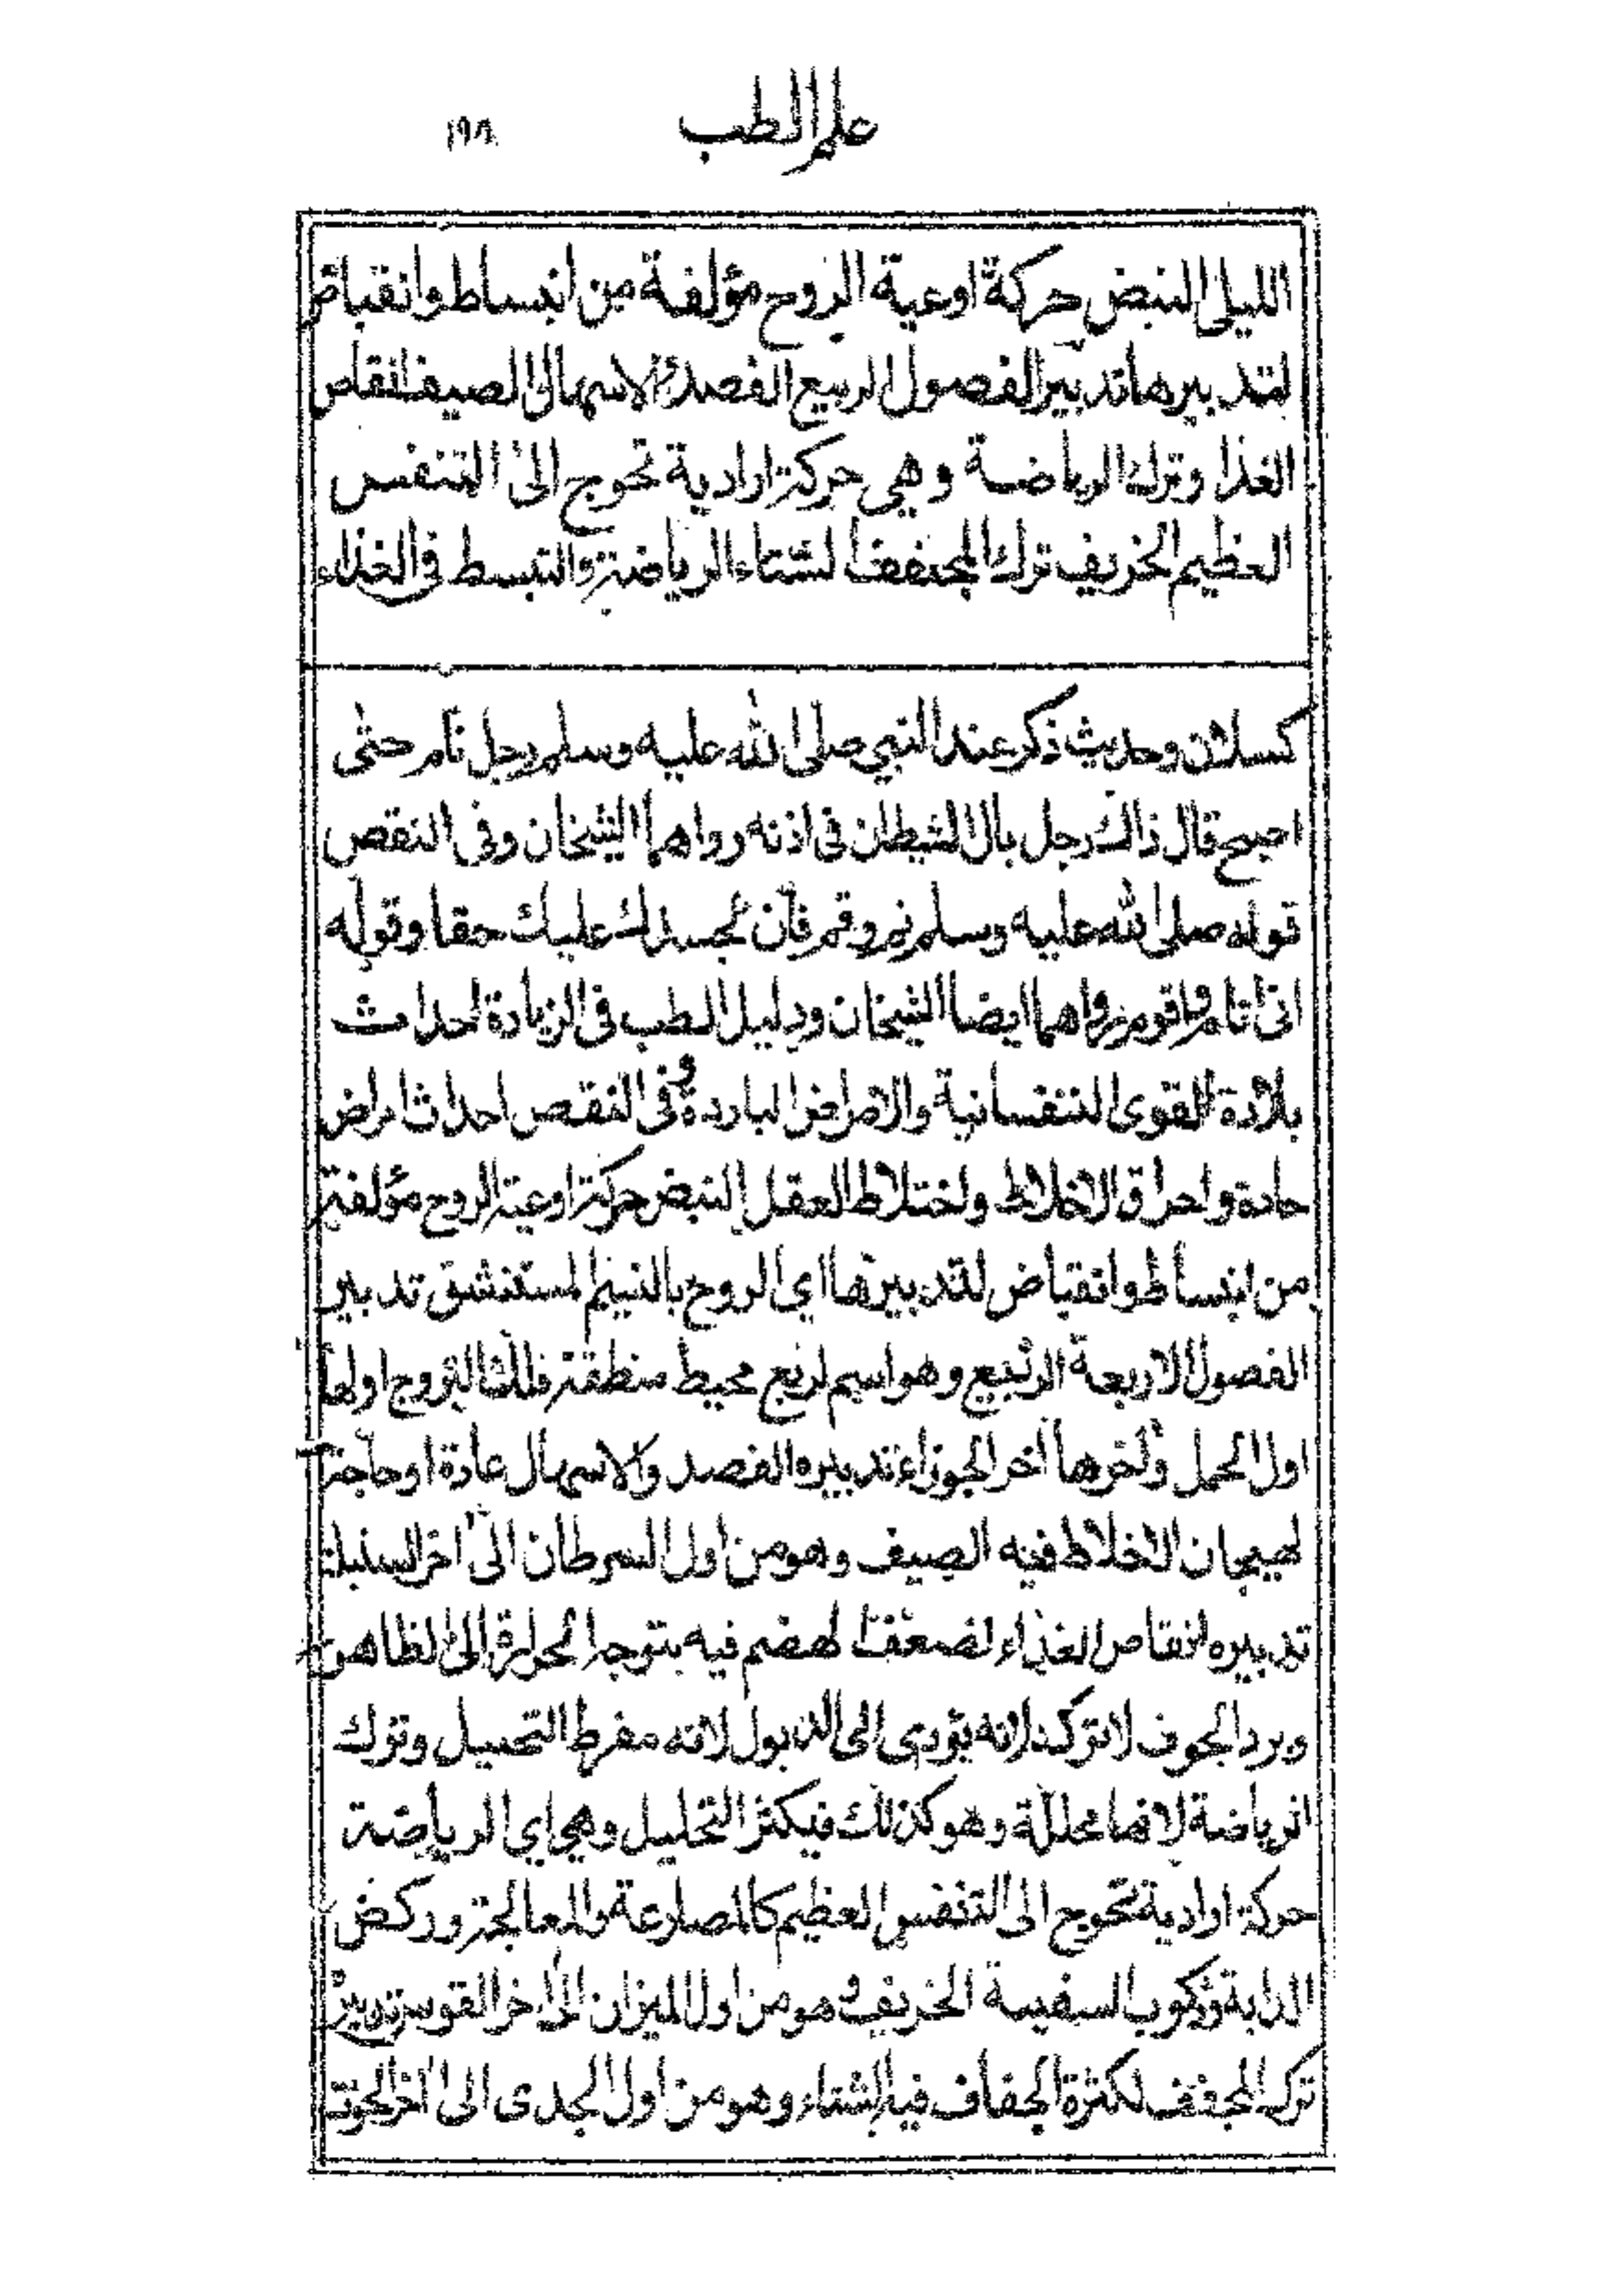 علم الطب ١٩٨
الليلى النبض حركة اوعية الروح مؤلفة من انبساط وانقباض
لتدبيرها تدبير الفصول الربيع الفصد والاسهال الصيف انقاص
الغذا وترك الرياضة وهي حركة ارادية تحوج الى التنفس
العظيم الخريف ترك المجفف الشتاء الرياضة والتبسط فى الغذاء
كسلان وحديث ذكر عند النبي صلى الله عليه وسلم رجل نام حتى
اصبح قال ذاك رجل بال الشيطان فى اذنه رواهما الشيخان وفى النقص
قوله صلى الله عليه وسلم نم وقم فان لجسدك عليك حقا وقوله
انى انام واقوم رواهما ايضا الشيخان ودليل الطب فى الزيادة احداث
بلادة القوى النفسانية والامراض الباردة وفى النقص احداث امراض
حادة واحراق الاخلاط واختلاط العقل النبض حركة اوعية الروح مؤلفة
من انبساط وانقباض لتدبيرها اى الروح بالنسيم المستنشق تدبير
الفصول الاربعة الربيع وهو اسم لربع محيط منطقة فلك البروج اولها
اول الحمل واخرها اخر الجوزاء تدبيره الفصد والاسهال عادة او حاجة
لهيجان الاخلاط فيه الصيف وهو من اول السرطان الى اخر السنبلة
تدبيره انقاص الغذاء لضعف الهضم فيه بتوجه الحرارة الى الظاهر
وبرد الجوف لا تركه لانه يؤدى الى الذبول لانه مفرط التحليل وترك
الرياضة لانها محللة وهو كذلك فيكثر التحليل وهى اي الرياضة
حركة ارادية تحوج الى التنفس العظيم كالمصارعة والمعالجة وركض
الدابة وركوب السفينة الخريف وهو من اول الميزان الى اخر القوس تدبيره
ترك المجفف لكثرة الجفاف فيه الشتاء وهو من اول الجدى الى اخر الحوت